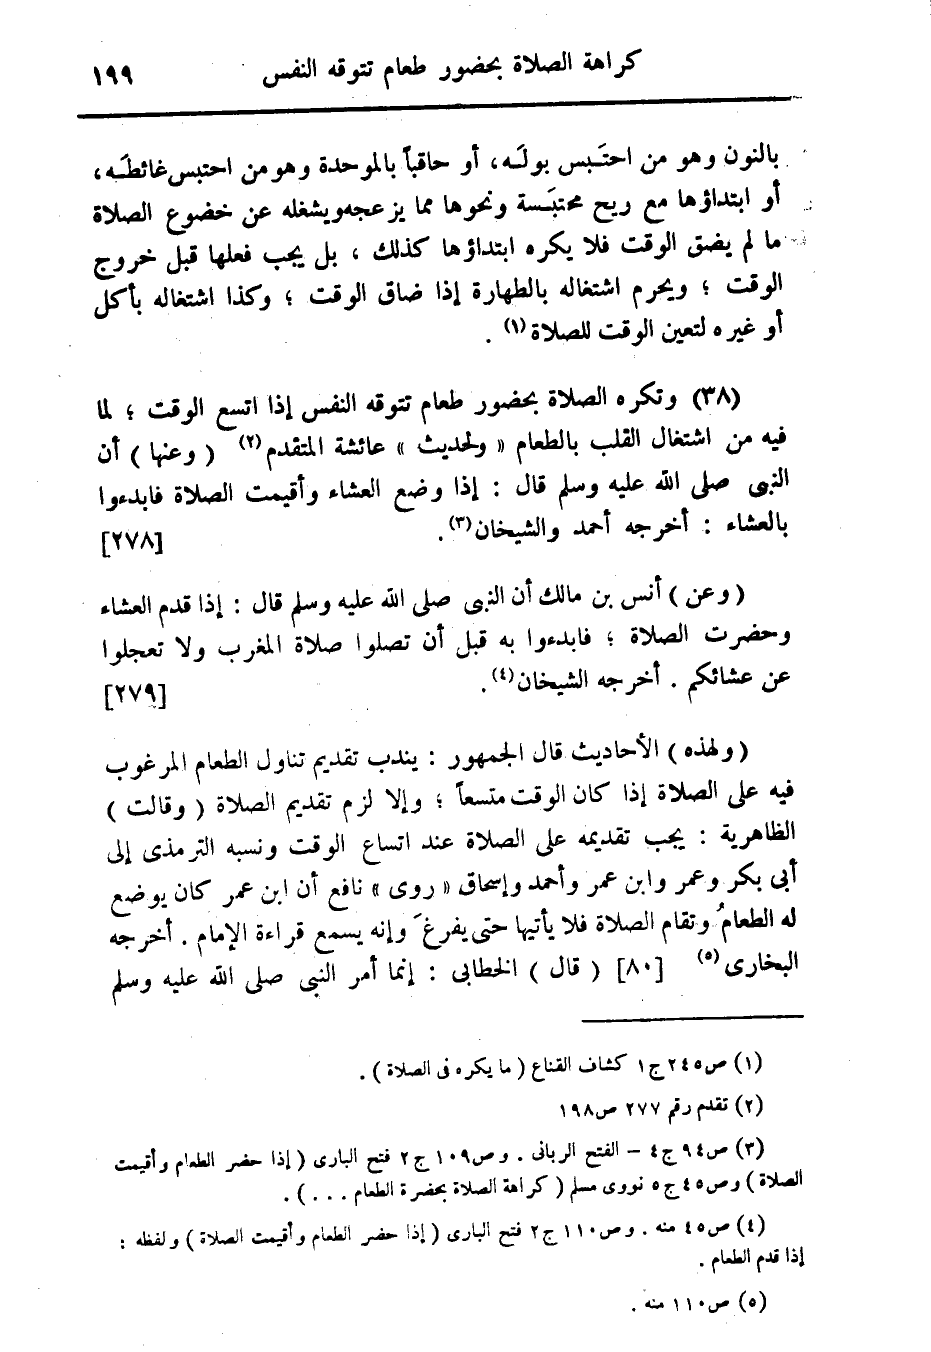 كراهة الصلاة بحضور طعام تتوقه النفس ١٩٩
بالنون وهو من احتَبس بولَه، أو حاقباً بالموحدة وهو من احتبس غائطَه،
أو ابتداؤها مع ريح محتبَسة ونحوها مما يزعجه ويشغله عن خضوع الصلاة
ما لم يضق الوقت فلا يكره ابتداؤها كذلك ، بل يجب فعلها قبل خروج
الوقت ؛ ويحرم اشتغاله بالطهارة إذا ضاق الوقت ؛ وكذا اشتغاله بأكل
أو غيره لتعين الوقت للصلاة (١) .
(٣٨) وتكره الصلاة بحضور طعام تتوقه النفس إذا اتسع الوقت ؛ لما
فيه من اشتغال القلب بالطعام « ولحديث » عائشة المتقدم (٢) ( وعنها ) أن
النبى صلى الله عليه وسلم قال : إذا وضع العشاء وأقيمت الصلاة فابدءوا
بالعشاء : أخرجه أحمد والشيخان (٣) . [٢٧٨]
( وعن ) أنس بن مالك أن النبى صلى الله عليه وسلم قال : إذا قدم العشاء
وحضرت الصلاة ؛ فابدءوا به قبل أن تصلوا صلاة المغرب ولا تعجلوا
عن عشائكم . أخرجه الشيخان (٤) . [٢٧٩]
( ولهذه ) الأحاديث قال الجمهور : يندب تقديم تناول الطعام المرغوب
فيه على الصلاة إذا كان الوقت متسعاً ؛ وإلا لزم تقديم الصلاة ( وقالت )
الظاهرية : يجب تقديمه على الصلاة عند اتساع الوقت ونسبه الترمذى إلى
أبى بكر وعمر وابن عمر وأحمد وإسحاق « روى » نافع أن ابن عمر كان يوضع
له الطعامُ وتقام الصلاة فلا يأتيها حتى يفرغَ وإنه يسمع قراءة الإمام . أخرجه
البخارى (٥) [٨٠] ( قال ) الخطابى : إنما أمر النبى صلى الله عليه وسلم
(١) ص٢٤٥ ج١ كشاف القناع ( ما يكره فى الصلاة ) .
(٢) تقدم رقم ٢٧٧ ص١٩٨
(٣) ص٩٤ ج٤ – الفتح الربانى . وص١٠٩ ج٢ فتح البارى ( إذا حضر الطعام وأقيمت
الصلاة ) وص٤٥ ج٥ نووى مسلم ( كراهة الصلاة بحضرة الطعام . . . ) .
(٤) ص٤٥ منه . وص١١٠ ج٢ فتح البارى ( إذا حضر الطعام وأقيمت الصلاة ) ولفظه :
إذا قدم الطعام .
(٥) ص١١٠ منه .